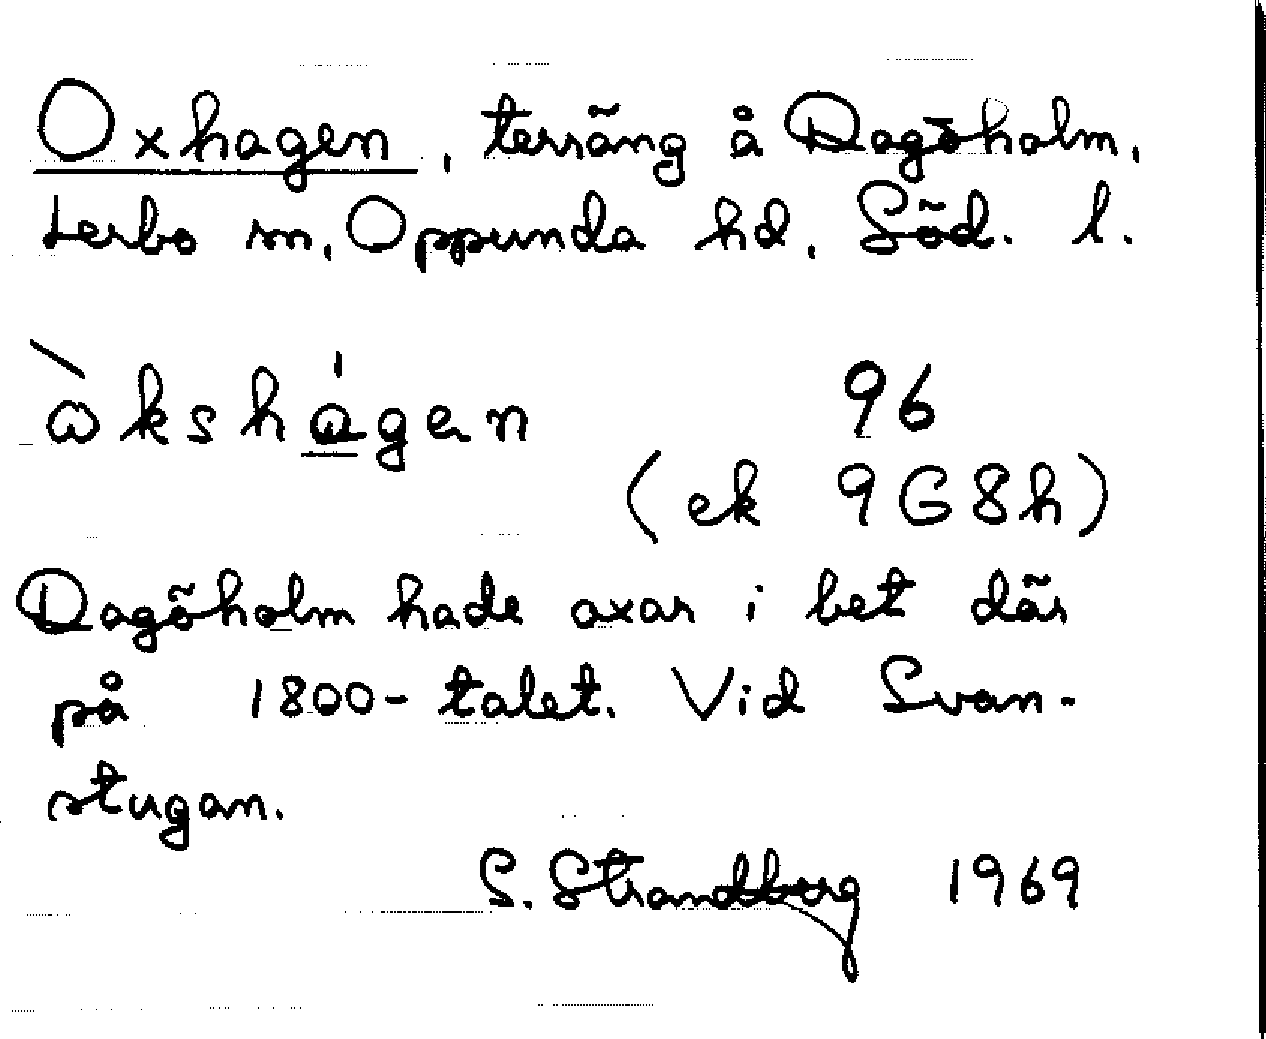 Oxhagen, terräng å Dagöholm,
Lerbo sn, Oppunda hd, Söd. l.
àkshágen 96
(ek 9G8h)
Dagöholm hade oxar i bet där
på 1800-talet. Vid Svan-
stugan.
S. Strandberg 1969